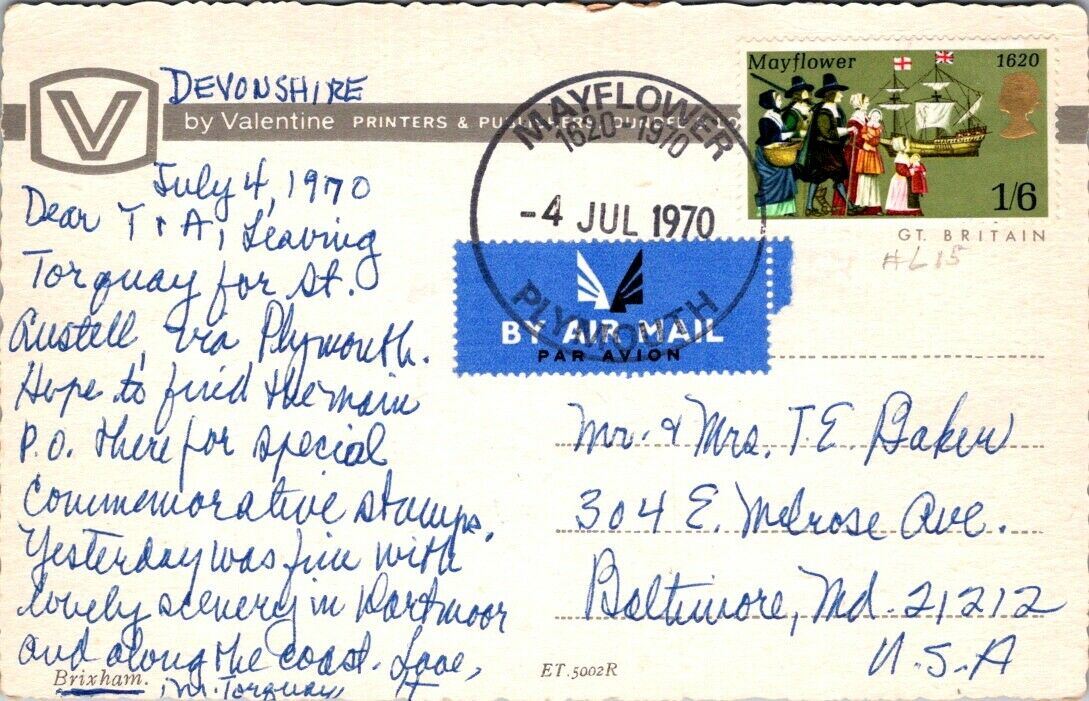 DEVONSHIRE
by Valentine PRINTERS & PUBLISHERS, DUNDEE & LO
July 4, 1970
Dear T & A, Leaving
Torquay for St.
Austell, via Plymouth.
Hope to find the main
P.O. there for special
Commemorative stamps.
Yesterday was fine with
lovely scenery in Dartmoor
and along the coast. Love,
Brixham. nr. Torquay,
ET.5002R
MAYFLOWER
1620-1970
-4 JUL 1970
PLYMOUTH
Mayflower 1620
1/6
GT. BRITAIN
#L15
BY AIR MAIL
PAR AVION
Mr. & Mrs. T. E. Baker
304 E. Melrose Ave.
Baltimore, Md. 21212
U.S.A